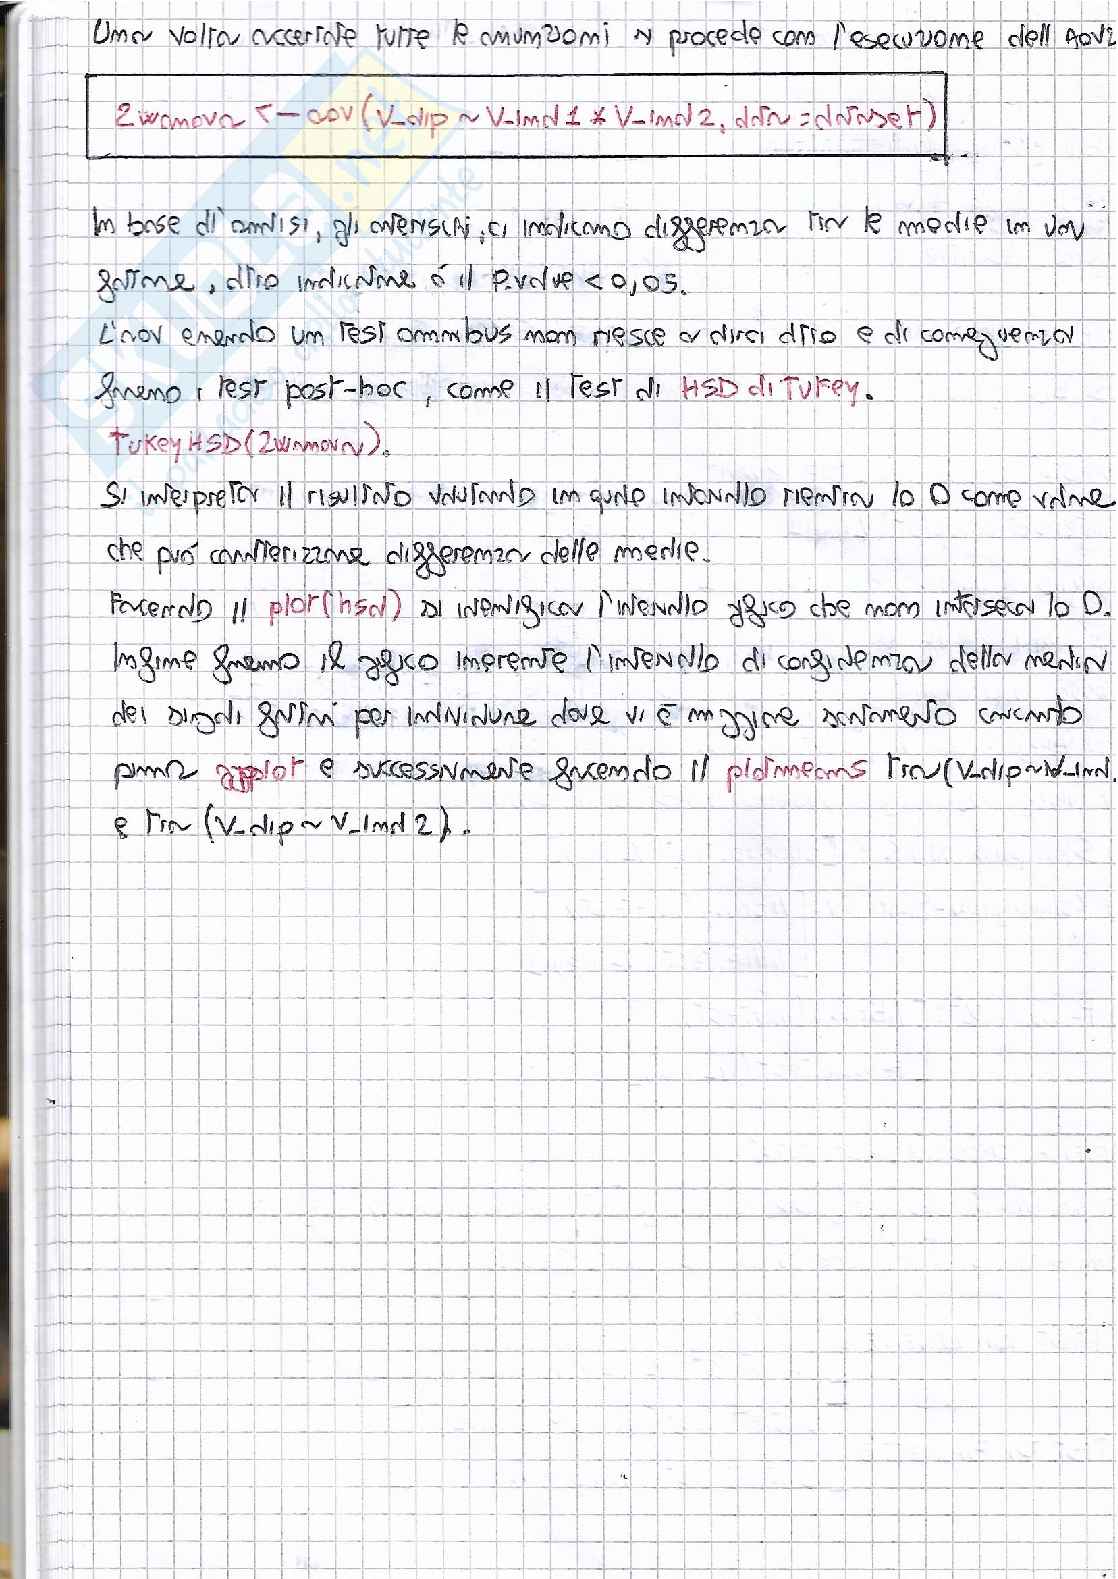 Una volta accertate tutte le assunzioni si procede con l'esecuzione dell'AOV2
2wanova <- aov(V_dip ~ V_ind1 * V_ind2, data = dataset)
In base all'analisi, gli asterischi, ci indicano differenza tra le medie in vari
fattori, altro indicatore è il P.value < 0,05.
L'aov essendo un test omnibus non riesce a dirci altro e di conseguenza
faremo i test post-hoc, come il test di HSD di Tukey.
TukeyHSD(2wanova).
Si interpreta il risultato valutando in quale intervallo rientra lo 0 come valore
che può caratterizzare differenza delle medie.
Facendo il plot(hsd) si identifica l'intervallo grafico che non interseca lo 0.
Infine faremo il grafico inerente l'intervallo di confidenza della media
dei singoli fattori per individuare dove vi è maggiore scostamento caricando
prima gplot e successivamente facendo il plotmeans tra (V_dip ~ V_ind.
e tra (V_dip ~ V_ind2).
SKUOLA.net